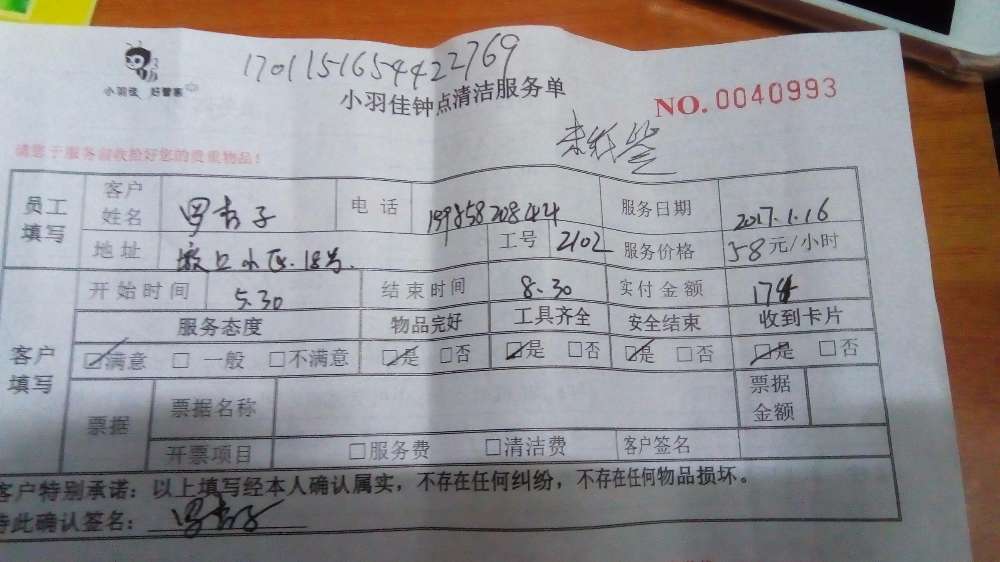 小羽佳 好管家
1701151654422769
小羽佳钟点清洁服务单
NO. 0040993
请您于服务前收拾好您的贵重物品!
员工填写 客户姓名 电话 服务日期 2017.1.16
地址 小区.18号. 工号 2102 服务价格 58元/小时
客户填写 开始时间 5.30 结束时间 8.30 实付金额 174
服务态度 物品完好 工具齐全 安全结束 收到卡片
满意 一般 不满意 是 否 是 否 是 否 是 否
票据 票据名称 票据金额
开票项目 服务费 清洁费 客户签名
客户特别承诺:以上填写经本人确认属实,不存在任何纠纷,不存在任何物品损坏。
特此确认签名: